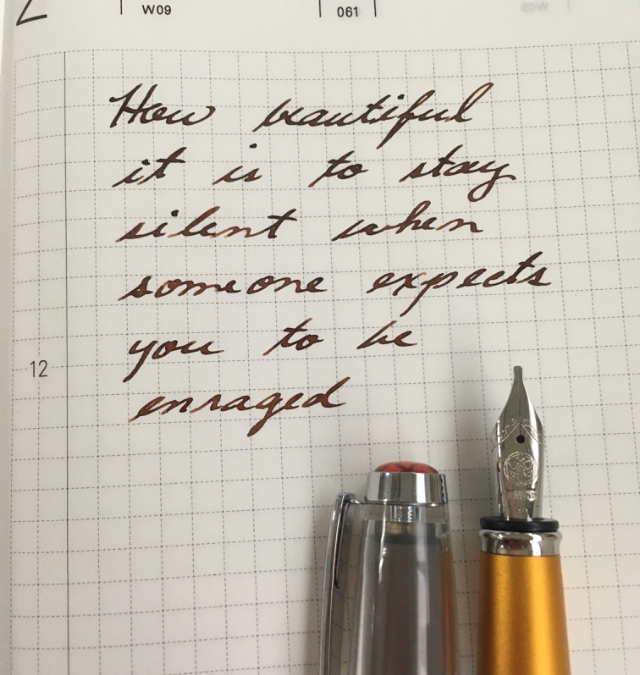 W09
061
How beautiful
it is to stay
silent when
someone expects
you to be
12
enraged